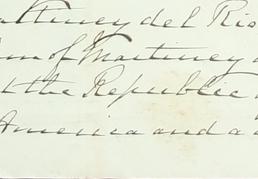 Martinez del Rio
of Martinez
the Republic
America and a